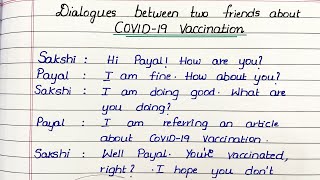 Dialogues between two friends about
COVID-19 Vaccination
Sakshi : Hi Payal! How are you?
Payal : I am fine. How about you?
Sakshi : I am doing good. What are
you doing?
Payal : I am referring an article
about COVID-19 vaccination.
Sakshi : Well Payal. You're vaccinated,
right? I hope you don't